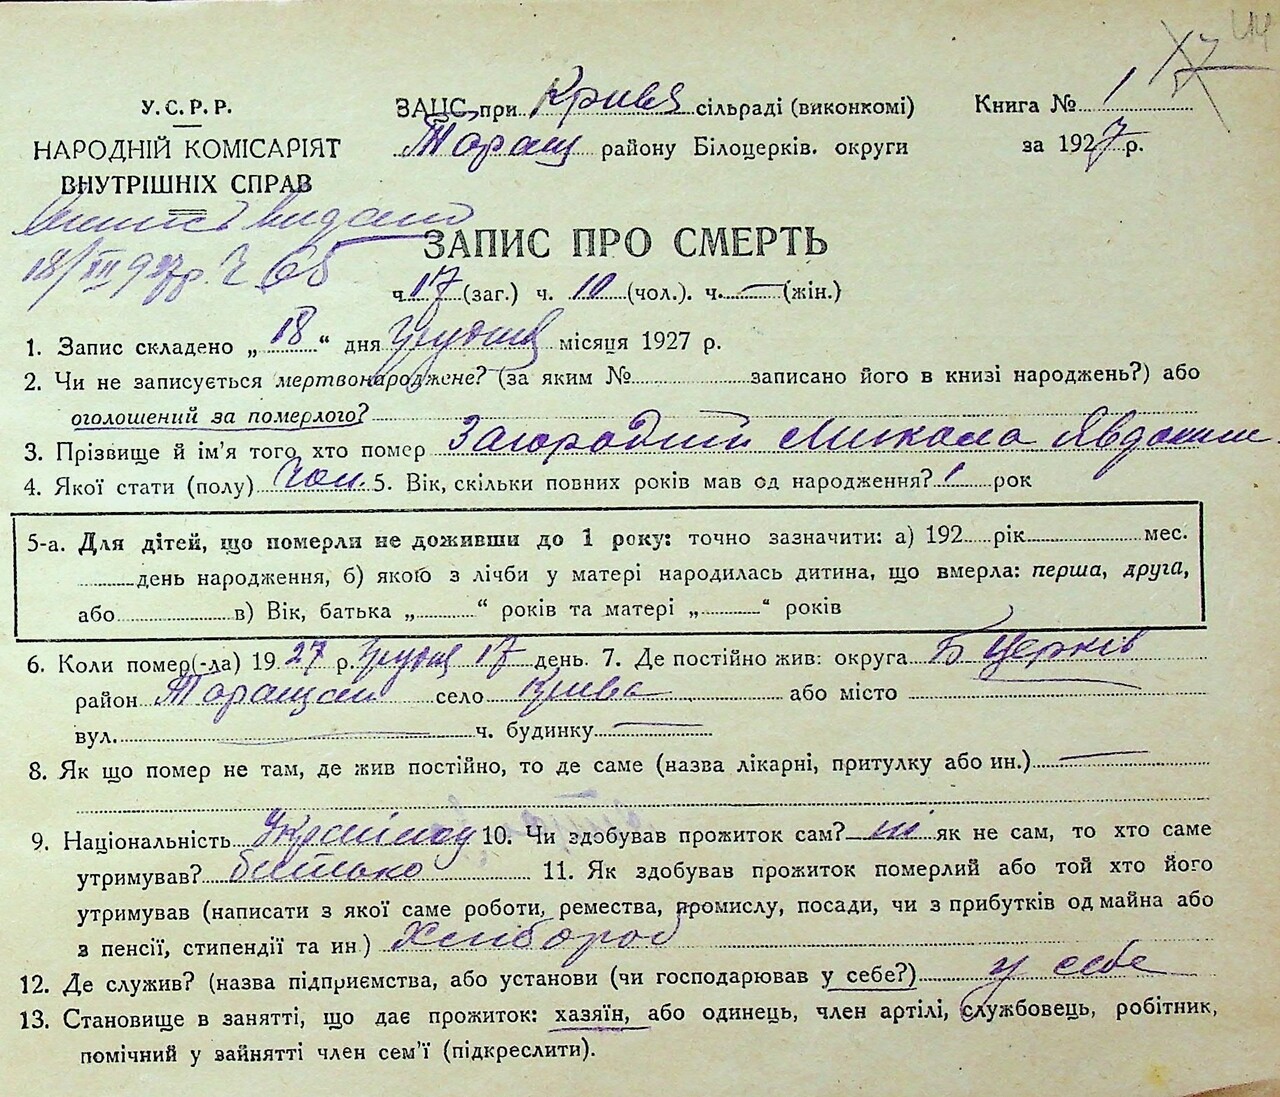 44
17
У.С.Р.Р.
НАРОДНІЙ КОМІСАРІЯТ
ВНУТРІШНІХ СПРАВ
ЗАЦС при Кривій сільраді (виконкомі)
Таращ району Білоцерків. округи
Книга № 1
за 1927 р.
Випись видано
18/XII 927р. Ч 65
ЗАПИС ПРО СМЕРТЬ
ч. 17 (заг.) ч. 10 (чол.). ч. — (жін.)
1. Запис складено „18“ дня Грудня місяця 1927 р.
2. Чи не записується мертвонароджене? (за яким №..........записано його в книзі народжень?) або
оголошений за померлого?
3. Прізвище й ім'я того хто помер Загородній Микола Явдоким
4. Якої стати (полу) Чол. 5. Вік, скільки повних років мав од народження? 1 рок
5-а. Для дітей, що померли не доживши до 1 року: точно зазначити: а) 192.....рік..........мес.
..........день народження, б) якою з лічби у матері народилась дитина, що вмерла: перша, друга,
або..........в) Вік, батька „..........“ років та матері „..........“ років
6. Коли помер(-ла) 1927 р. Грудня 17 день. 7. Де постійно жив: округа Б Церків
район Таращан село Крива або місто
вул. — ч. будинку —
8. Як що помер не там, де жив постійно, то де саме (назва лікарні, притулку або ин.) —
9. Національність 10. Чи здобував прожиток сам? ні як не сам, то хто саме
утримував? батько 11. Як здобував прожиток померлий або той хто його
утримував (написати з якої саме роботи, ремества, промислу, посади, чи з прибутків од майна або
з пенсії, стипендії та ин.) Хлібороб
12. Де служив? (назва підприємства, або установи (чи господарював у себе?) у себе
13. Становище в занятті, що дає прожиток: хазяїн, або одинець, член артілі, службовець, робітник,
помічний у зайнятті член сем'ї (підкреслити).